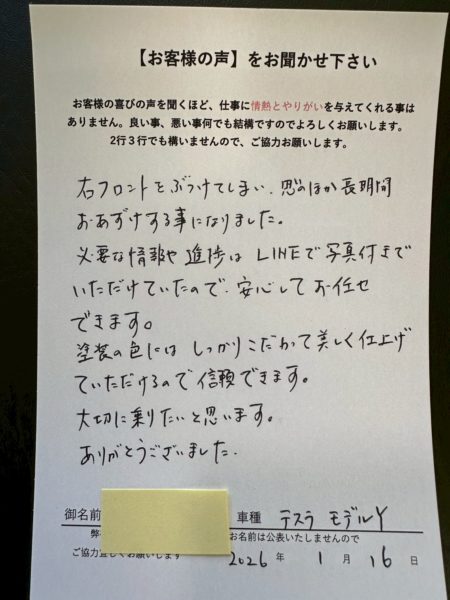 【お客様の声】をお聞かせ下さい
お客様の喜びの声を聞くほど、仕事に情熱とやりがいを与えてくれる事は
ありません。良い事、悪い事何でも結構ですのでよろしくお願いします。
2行３行でも構いませんので、ご協力お願いします。
右フロントをぶつけてしまい、思のほか長期間
おあずけする事になりました。
必要な情報や進捗はLINEで写真付きで
いただけていたので、安心してお任せ
できます。
塗装の色にはしっかりこだわって美しく仕上げ
ていただけるので信頼できます。
大切に乗りたいと思います。
ありがとうございました.
御名前 車種 テスラ モデルY
弊 お名前は公表いたしませんので
ご協力宜しくお願いします 2026年 1月16日